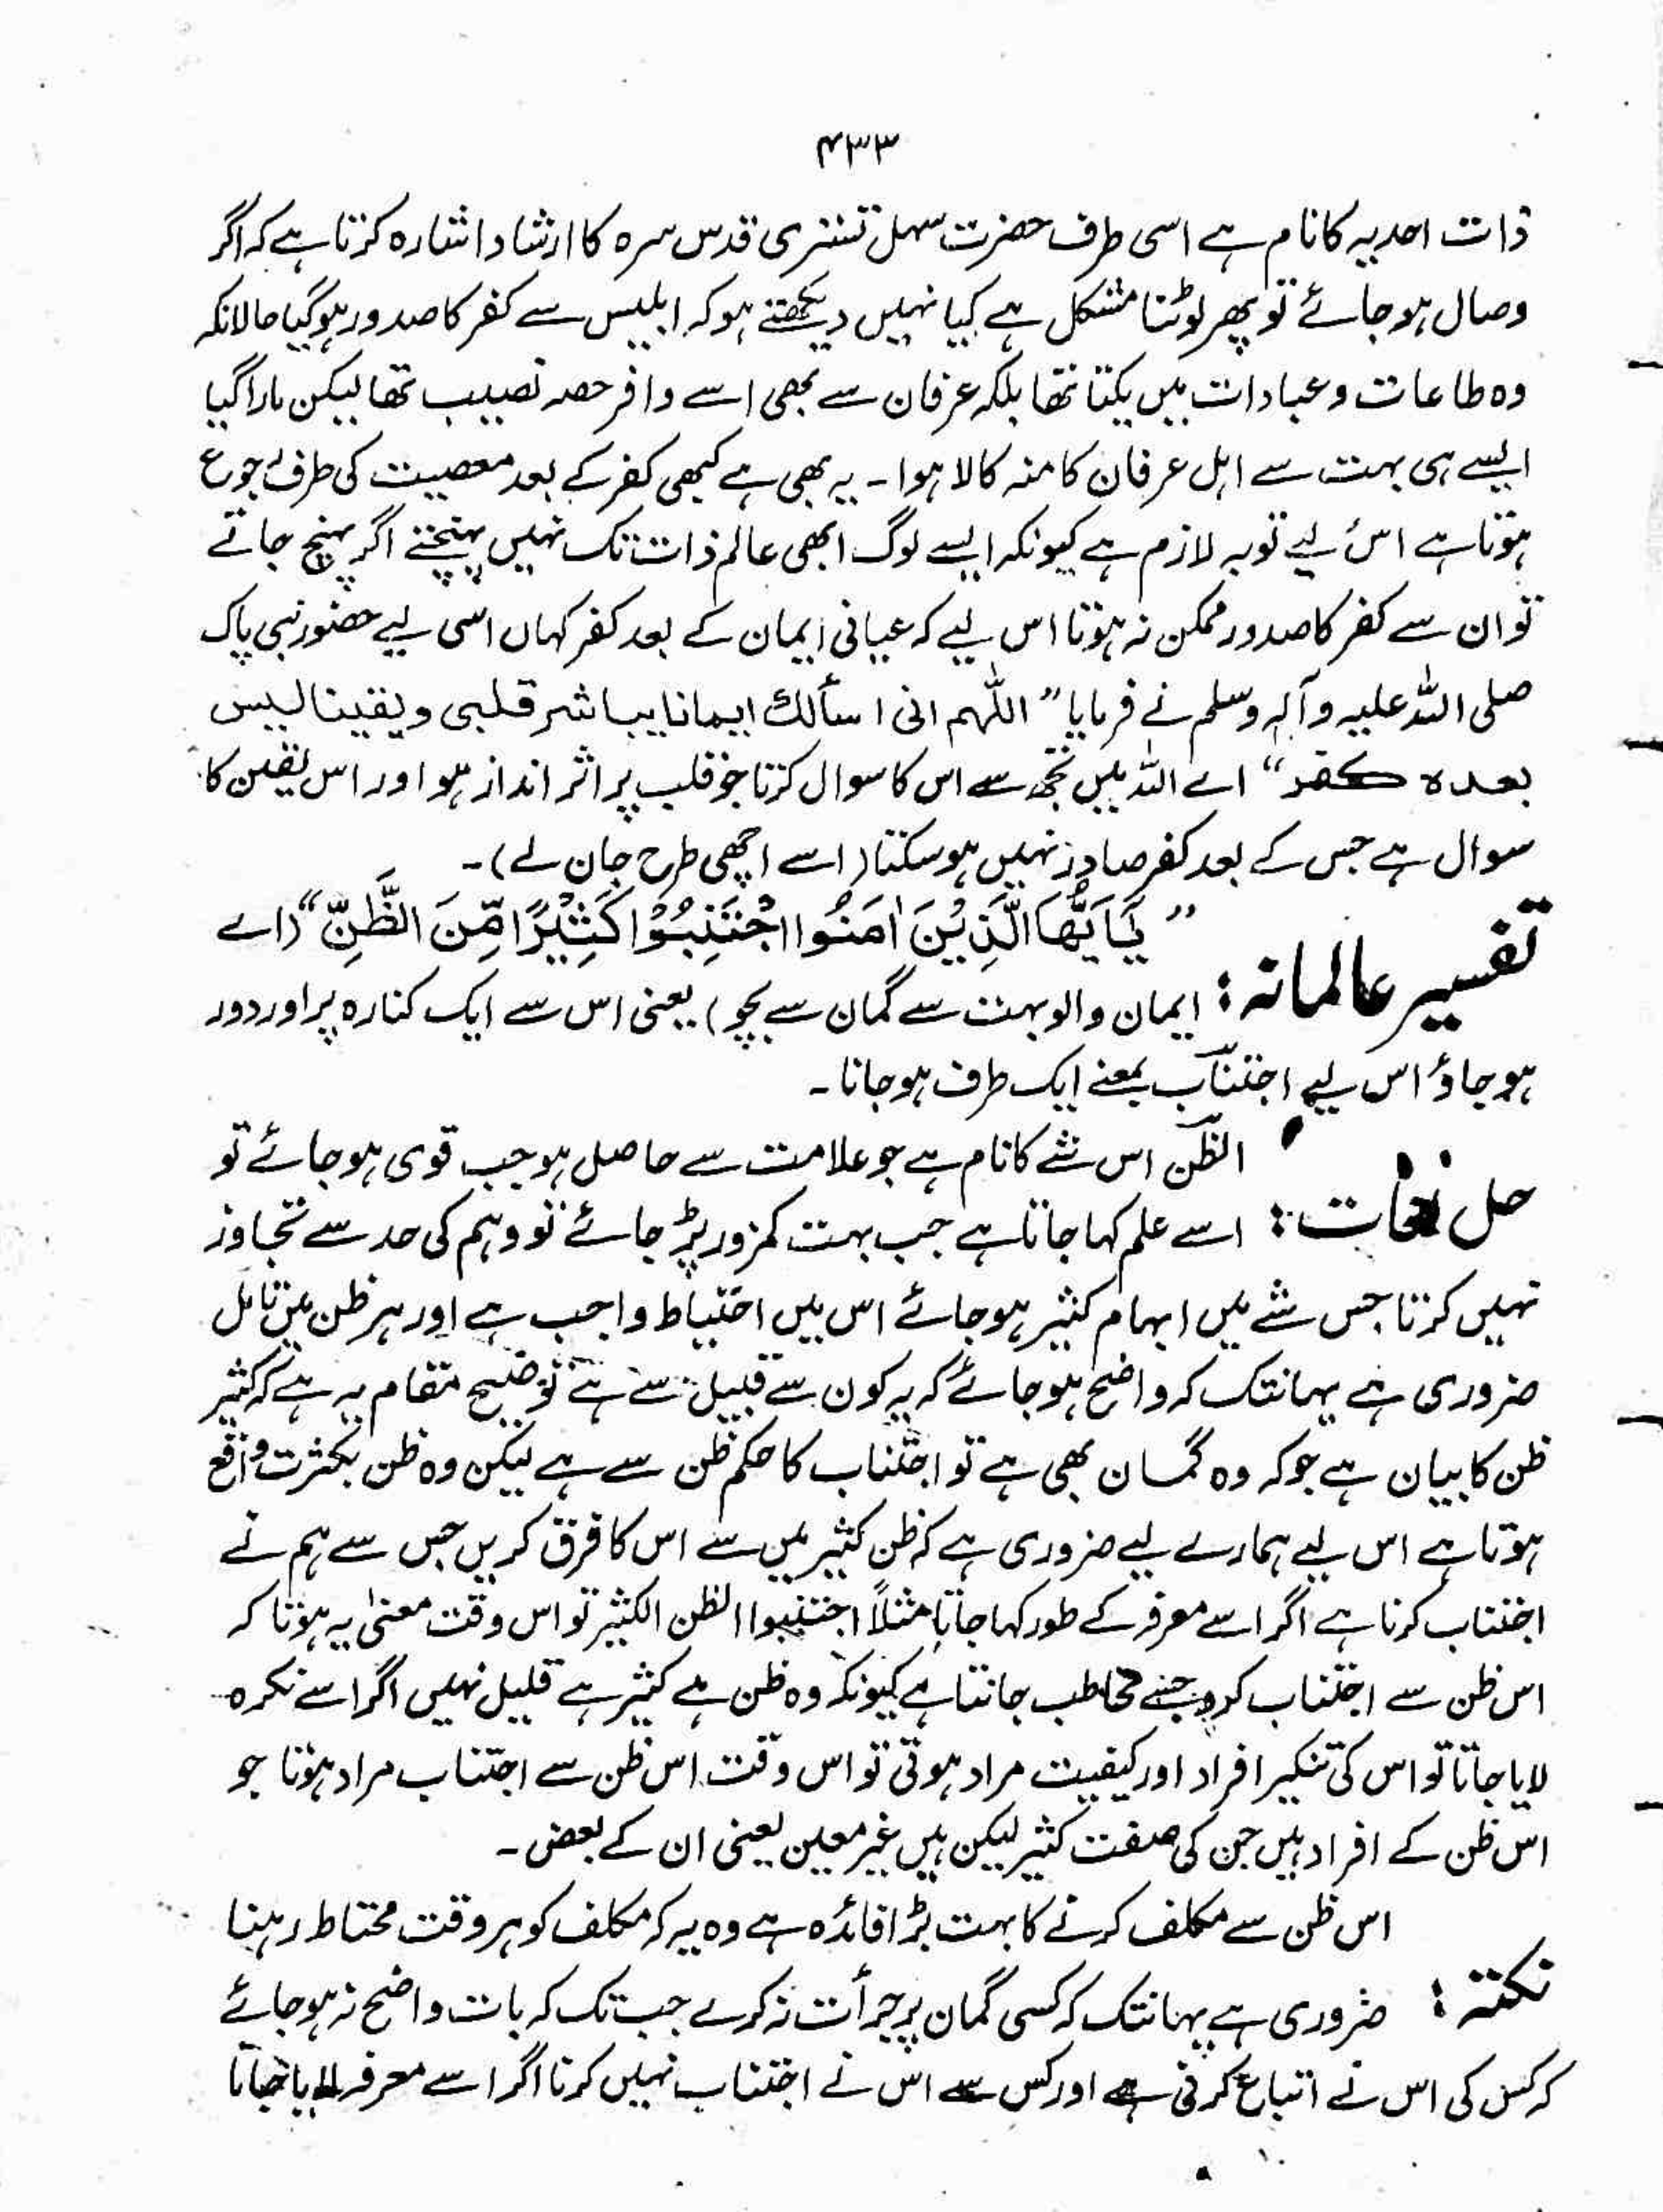 ۴۳۳
ذات احدیہ کا نام ہے اسی طرف حضرت سہل تستری قدس سرہ کا ارشاد اشارہ کرتا ہے کہ اگر
وصال ہو جائے تو پھر لوٹنا مشکل ہے کیا نہیں دیکھتے ہو کہ ابلیس سے کفر کا صدور ہو گیا حالانکہ
وہ طاعات و عبادات میں یکتا تھا بلکہ عرفان سے بھی اسے وافر حصہ نصیب تھا لیکن مارا گیا
ایسے ہی بہت سے اہل عرفان کا منہ کالا ہوا ۔ یہ بھی ہے کبھی کفر کے بعد معصیت کی طرف رجوع
ہوتا ہے اس لیے توبہ لازم ہے کیونکہ ایسے لوگ ابھی عالم ذات تک نہیں پہنچتے اگر پہنچ جاتے
تو ان سے کفر کا صدور ممکن نہ ہوتا اس لیے کہ عیانی ایمان کے بعد کفر کہاں اسی لیے حضور نبی پاک
صلی اللہ علیہ وآلہ وسلم نے فرمایا ” اللّٰہم انی اسألك ایمانا یباشر قلبی و یقینا لیس
بعدہ کفر “ اے اللہ میں تجھ سے اس کا سوال کرتا جو قلب پر اثر انداز ہو اور اس یقین کا
سوال ہے جس کے بعد کفر صادر نہیں ہو سکتا (اسے اچھی طرح جان لے) ۔
” یٰۤاَیُّهَا الَّذِیْنَ اٰمَنُوا اجْتَنِبُوْا كَثِیْرًا مِّنَ الظَّنِّ “ (اے
تفسیر عالمانہ : ایمان والو بہت سے گمان سے بچو) یعنی اس سے ایک کنارہ پر اور دور
ہو جاؤ اس لیے اجتناب بمعنے ایک طرف ہو جانا ۔
الظن اس شے کا نام ہے جو علامت سے حاصل ہو جب قوی ہو جائے تو
حل لغات : اسے علم کہا جاتا ہے جب بہت کمزور پڑ جائے تو وہم کی حد سے تجاوز
نہیں کرتا جس شے میں ابہام کثیر ہو جائے اس میں احتیاط واجب ہے اور ہر ظن میں تامل
ضروری ہے یہانتک کہ واضح ہو جائے کہ یہ کون سے قبیل سے ہے توضیح مقام یہ ہے کہ کثیر
ظن کا بیان ہے جو کہ وہ گمان بھی ہے تو اجتناب کا حکم ظن سے ہے لیکن وہ ظن بکثرت واقع
ہوتا ہے اس لیے ہمارے لیے ضروری ہے کہ ظن کثیر میں سے اس کا فرق کریں جس سے ہم نے
اجتناب کرنا ہے اگر اسے معرفہ کے طور کہا جاتا مثلاً اجتنبوا الظن الکثیر تو اس وقت معنیٰ یہ ہوتا کہ
اس ظن سے اجتناب کرو جسے مخاطب جانتا ہے کیونکہ وہ ظن ہے کثیر ہے قلیل نہیں اگر اسے نکرہ
لایا جاتا تو اس کی تنکیر افراد اور کیفیت مراد ہوتی تو اس وقت اس ظن سے اجتناب مراد ہوتا جو
اس ظن کے افراد ہیں جن کی صفت کثیر لیکن ہیں غیر معین یعنی ان کے بعض ۔
اس ظن سے مکلف کرنے کا بہت بڑا فائدہ ہے وہ یہ کہ مکلف کو ہر وقت محتاط رہنا
نکتہ : ضروری ہے یہانتک کہ کسی گمان پر جرأت نہ کرے جب تک کہ بات واضح نہ ہو جائے
کہ کس کی اس نے اتباع کرنی ہے اور کس سے اس نے اجتناب نہیں کرنا اگر اسے معرفہ لایا جاتا